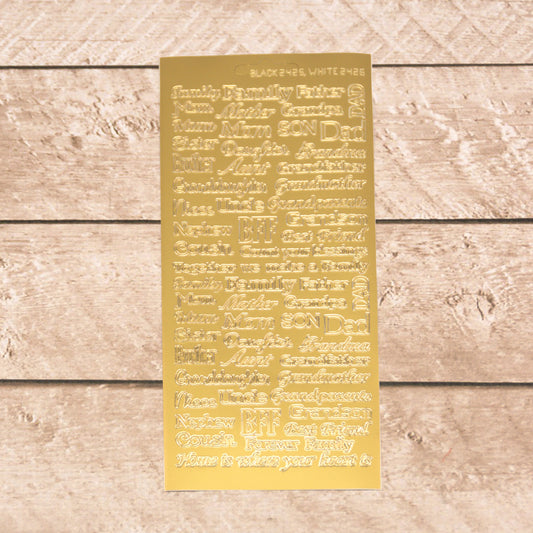 BLACK 2426, WHITE 2426
Family Family Father DAD
Mum Mother Grandpa
Mum Mom SON Dad
Sister Daughter Grandma
Aunt Grandfather
Granddaughter Grandmother
Niece Uncle Grandparents
Nephew BFF Grandson
Cousin Best Friend
Family Father DAD
Mum Mother Grandpa
Mum Mom SON Dad
Sister Daughter Grandma
Aunt Grandfather
Granddaughter Grandmother
Niece Uncle Grandparents
Nephew BFF Grandson
Cousin Best Friend
Forever Family
Home is where your heart is